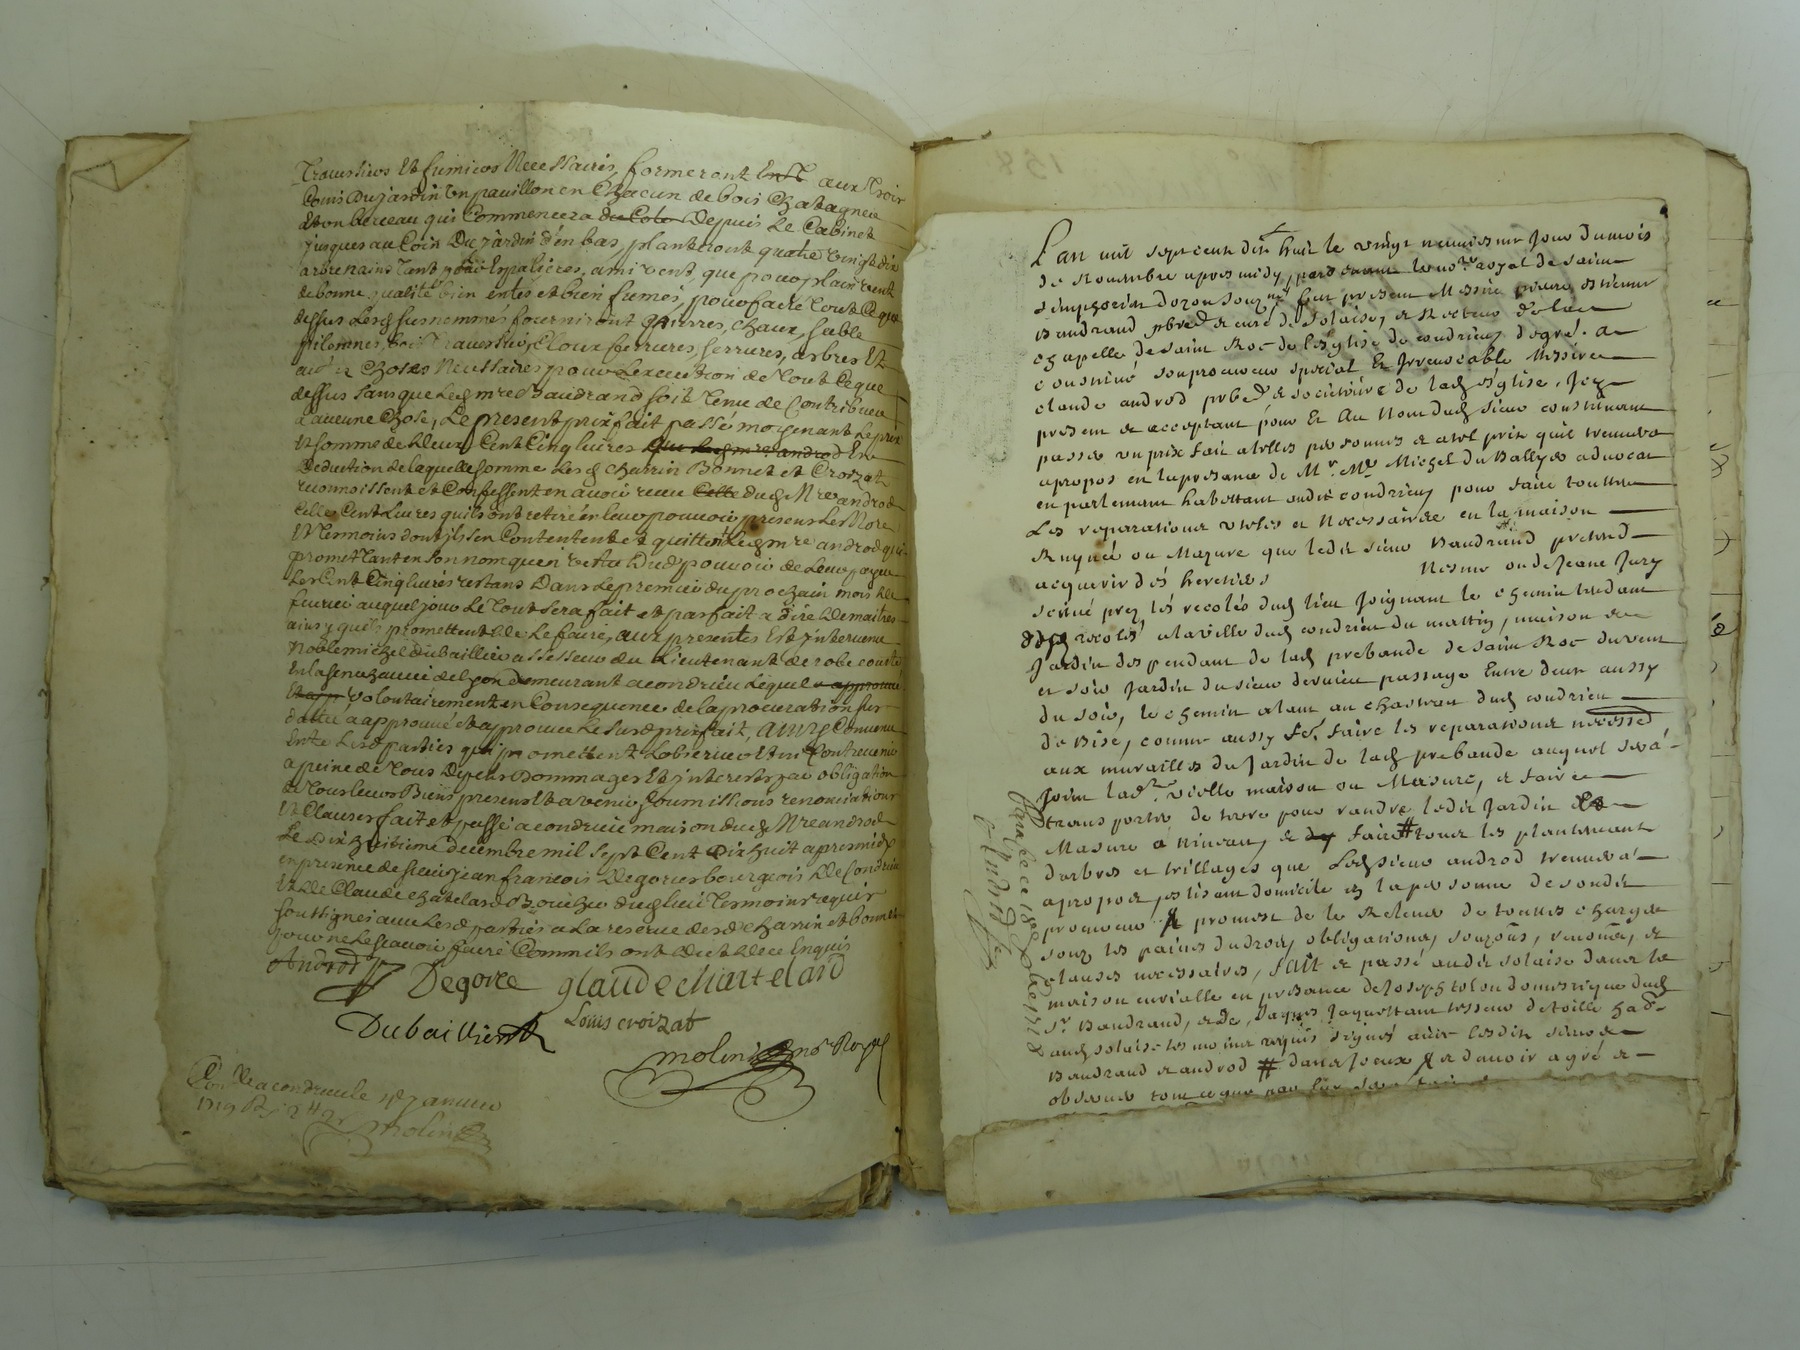 Traversiers Et fumiers Necessaires, formeront aux Trois
Coins Du jardin Un pavillon en Chacun de bois Chatagnier
Et un berceau qui Commencera du Coto Depuis Le Cabinet
jusques au Coin Du jardin d'en bas, planteront quatre vingt dix
arbre nains tant pour Espalieres, a mi vent, que pour plain vent
de bonne qualité bien entés et bien fumés, pour faire Tout Ce que
dessus Lesd susnommés fourniront pierres, chaux, sable
Clour ferrures, serrures, arbres Et
Choses Necessaires pour Lexecution de Tout Ceque
dessus Sans que Led mre Baudrand soit Tenu de Contribuer
a aucune Chose, Le present prix fait passé moyenant Le prix
Et somme de Deux Cent Cinq livres que led mre androd En
Deduction de laquelle somme Lesd Charrin Bonnet et Croizat
reconnoissent et Confessent en avoir receu Celle dud Mre androd
Celle Cent Livres quils ont retiré en leur pouvoir presens Les Nore
Et Temoins dont ils sen Contentent et quittent Led mre androd qui
promet tant en son nom quen vertu Dud pouvoir de Leur payer
Les Cent Cinq livres restans Dans le premier du prochain mois de
fevrier auquel jour Le Tout sera fait et parfait a dire de maitres
ainsy quils promettent de Le faire, aux presentes Est intervenu
Noble michel dubaillier assesseur du Lieutenant de robe courte
En la senechaucée de Lyon demeurant a condrieu Lequel a approuvé
Et app volontairement en Consequence de la procuration sur
datté a approuvé et approuve Le susd prix fait, Ainsy Convenu
Entre Lesd parties qui promettent Lobserver Et ny Contrevenir
a peine de Tous Depens Dommages Et interests par obligation
de Tous leurs Biens presens Et avenir Soumissions renonciations
Et Clauses fait et passé a condrieu maison dud Mre androd
Le Dix huitieme decembre mil Sept Cent Dix huit apres midy
en presence de sieur jean francois Degorce bourgeois De Condrieu
Et De Claude Chatelard Boucher dud lieu Temoins requis
soussignés avec Lesd parties a La reserve desd Charrin et bonnet
pour ne Le scavoir faire Comm ils ont dict De ce Enquis
Androd
Degorce glaude chartelard
Dubaillier Louis croizat
molin no Royal
Con.lle a condrieu le janvier
1719 R
molin
L'an mil sept cent dix huit le vingt neuviesme Jour du mois
de Novembre apres midy, pard devant le nore royal de saint
simphorien dozon souzné fut presant Messire pierre estienne
Baudrand pbre & curé de Solaise, & Recteur de la
chapelle de saint Roc de l'église de condrieu, de gré. a
constitué son procureur special Et Irrevocable Messire
claude androd pbre & societaire de lad église, Icy
present & acceptant pour Et Au Nom dud sieur constituant
passer un prix fait a telles personnes & a tel prix qu'il trouvera
apropos en la presance de Mr Me Michel du Ballyer advocat
en parlement habittant audit condrieu pour faire touttes
Les reparations utoles et Necessaires en la maison
Ruynée ou Mazure que ledit sieur Baudrand pretend
acquerir des heretiers Nesme ou de Jeane Jury
scitué prez lés recolés dud lieu Joignant le chemin tendant
desd recolés a la ville dud condrieu du mattin, maison &
Jardin despendant de lad prebande de saint Roc du vent
et soir Jardin du sieur dervieu passage Entre deux aussy
du soir, le chemin alant au chasteau dud condrieu
de Bise, comme aussy de faire les reparations necessres
aux murailles du Jardin de lad prebande auquel sera
Joint lade vielle maison ou Masure, & faire
transporter de terre pour randre ledit Jardin &
Masure a Niveau, & dy faire # tour les plantement
darbres et trillages que Led sieur androd trouvera
apropos eslisant domicile en la personne de sondit
procureur & promest de le Relever de touttes charges
souz les paines du droit, obligations, soumons, renons, &
clauses necessaires, fait & passé audit solaise dans la
maison curialle en presance de Joseph tolon domestique dud
Sr Baudrand, & de Jaques Jaquettant tesseur de toille had
aud solaise tesmoins requis signés avec lesdits sieurs
Baudrand & androd # dans Iceux & davoir agré &
observer tout ce que par luy sera fait
Parafé ce 18e Xbre 1718
C Androd